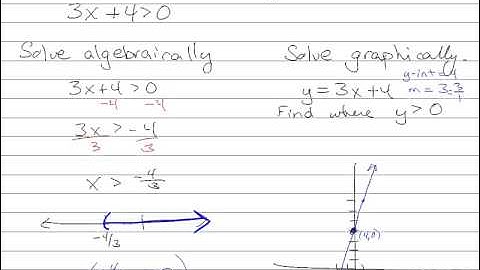 3x+4>0
Solve algebraically
3x+4>0
-4 -4
3x > -4
3 3
x > -4/3
-4/3
Solve graphically.
y-int=4
y=3x+4
m=3=3/1
Find where y>0
(4,0)